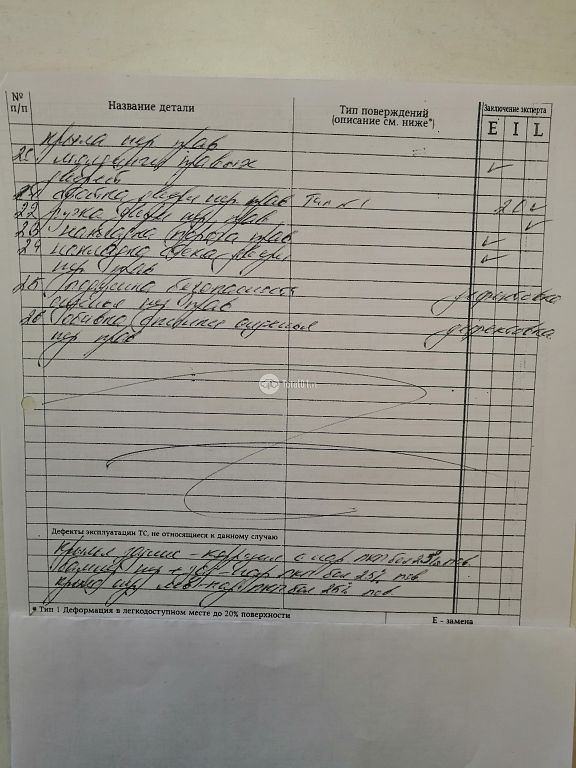 № п/п
Название детали
Тип поверждений
(описание см. ниже*)
Заключение эксперта
E I L
крыла пер прав
20 молдинги правых
дверей
21 обшивка двери пер прав Тип №1 2,0 ✓
22 ручка двери пер прав ✓
23 накладка порога прав ✓
24 накладка стекла двери ✓
пер прав
25 Подушка безопасности дефектовка
сиденья пер прав
26 Обивка спинки сиденья дефектовка
пер прав
total01.ru
Дефекты эксплуатации ТС, не относящиеся к данному случаю
крылья задние - коррозия с нар ЛКП бол 25% пов
бампер пер + зад - нар ЛКП бол 25% пов
крыло пер лев - нар ЛКП бол 25% пов
* Тип 1 Деформация в легкодоступном месте до 20% поверхности
E - замена